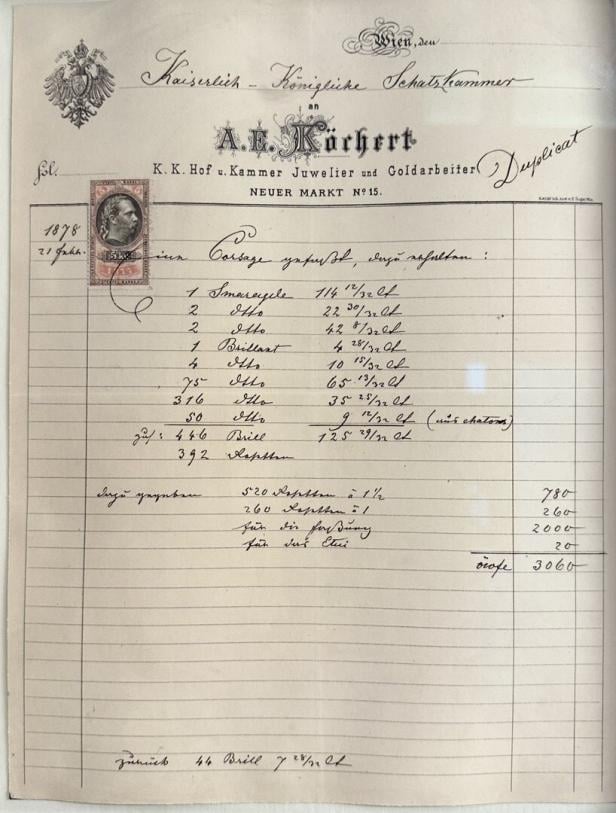 Wien, den
Kaiserlich - Königliche Schatzkammer
an
A. E. Köchert
K. K. Hof u. Kammer Juwelier und Goldarbeiter
Duplicat
NEUER MARKT No 15.
1878
21 Febr.
Eine Corsage gefaßt, dazu erhalten:
1 Smaragde 114 12/32 Ct
2 dtto 22 30/32 Ct
2 dtto 42 8/32 Ct
1 Brillant 4 28/32 Ct
4 dtto 10 15/32 Ct
75 dtto 65 13/32 Ct
316 dtto 35 25/32 Ct
50 dtto 9 12/32 Ct (aus chatons)
zus: 446 Brill 125 29/32 Ct
392 Rosetten
dazu gegeben 520 Rosetten à 1½ 780
260 Rosetten à 1 260
für die Faßung 2000
für das Etui 20
3060
zurück 44 Brill 7 28/32 Ct